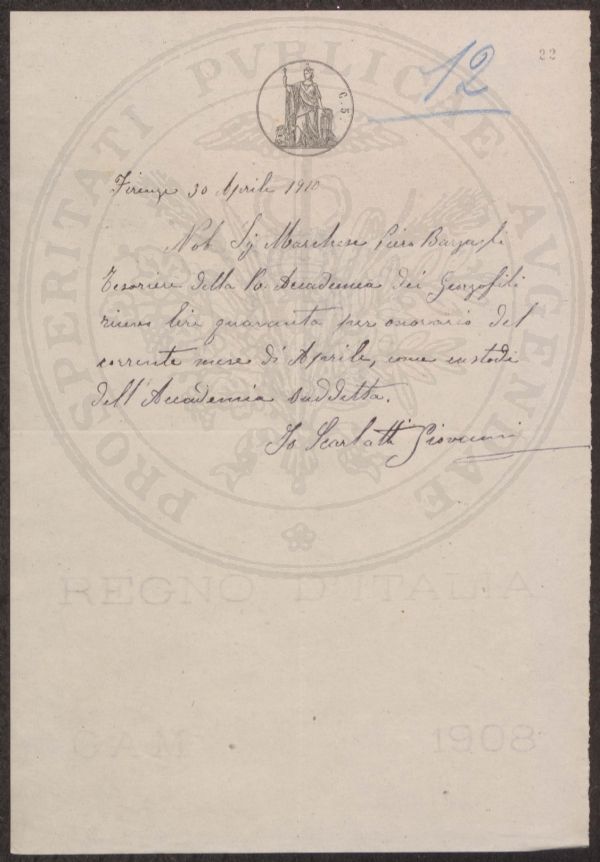 12
22
C. 5.
PROSPERITATI PVBLICAE AVGENDAE
Firenze 30 Aprile 1910
Nob. Sig Marchese Piero Bargagli
Tesoriere della R. Accademia dei Georgofili
ricevo lire quaranta per onorario del
corrente mese di Aprile, come custode
dell'Accademia suddetta.
Io Scarlatti Giovanni
REGNO D'ITALIA
1908